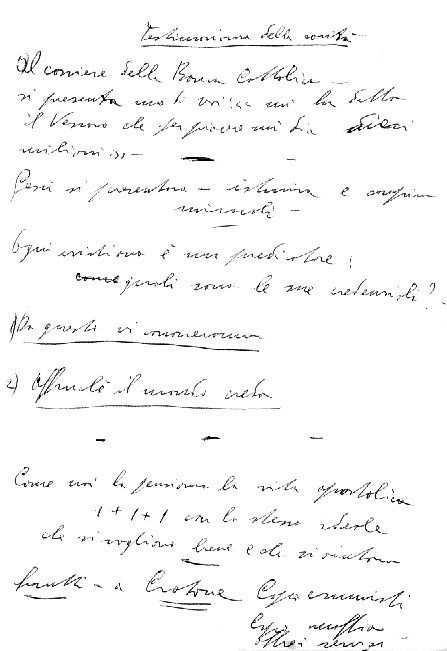 Testimonianza della verità
Al corriere della Banca Cattolica -
si presenta uno ti ha detto
il Vescovo che per piacere mi dia dieci
milioni »-
Gesù si presentava - istruiva e compiva
miracoli -
Ogni cristiano è un predicatore:
quali sono le sue credenziali?
1) Da questo vi conosceranno
2) Affinché il mondo creda
Come noi la pensiamo la vita apostolica
1 + 1 + 1 con lo stesso ideale
che si vogliono bene e che si aiutano
frutti - a Crotone